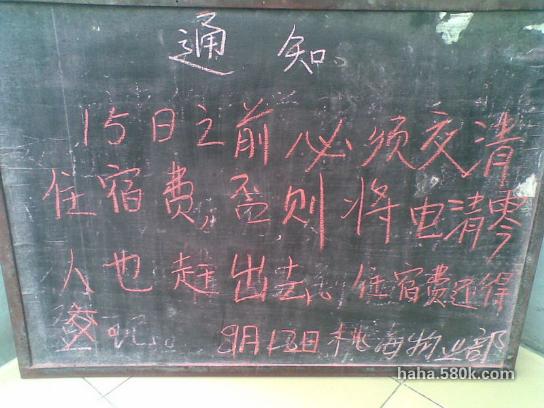 通知
15日之前必须交清
住宿费,否则将电清零
人也赶出去。住宿费还得
登记。 9月13日桃海物业部
haha.580k.com